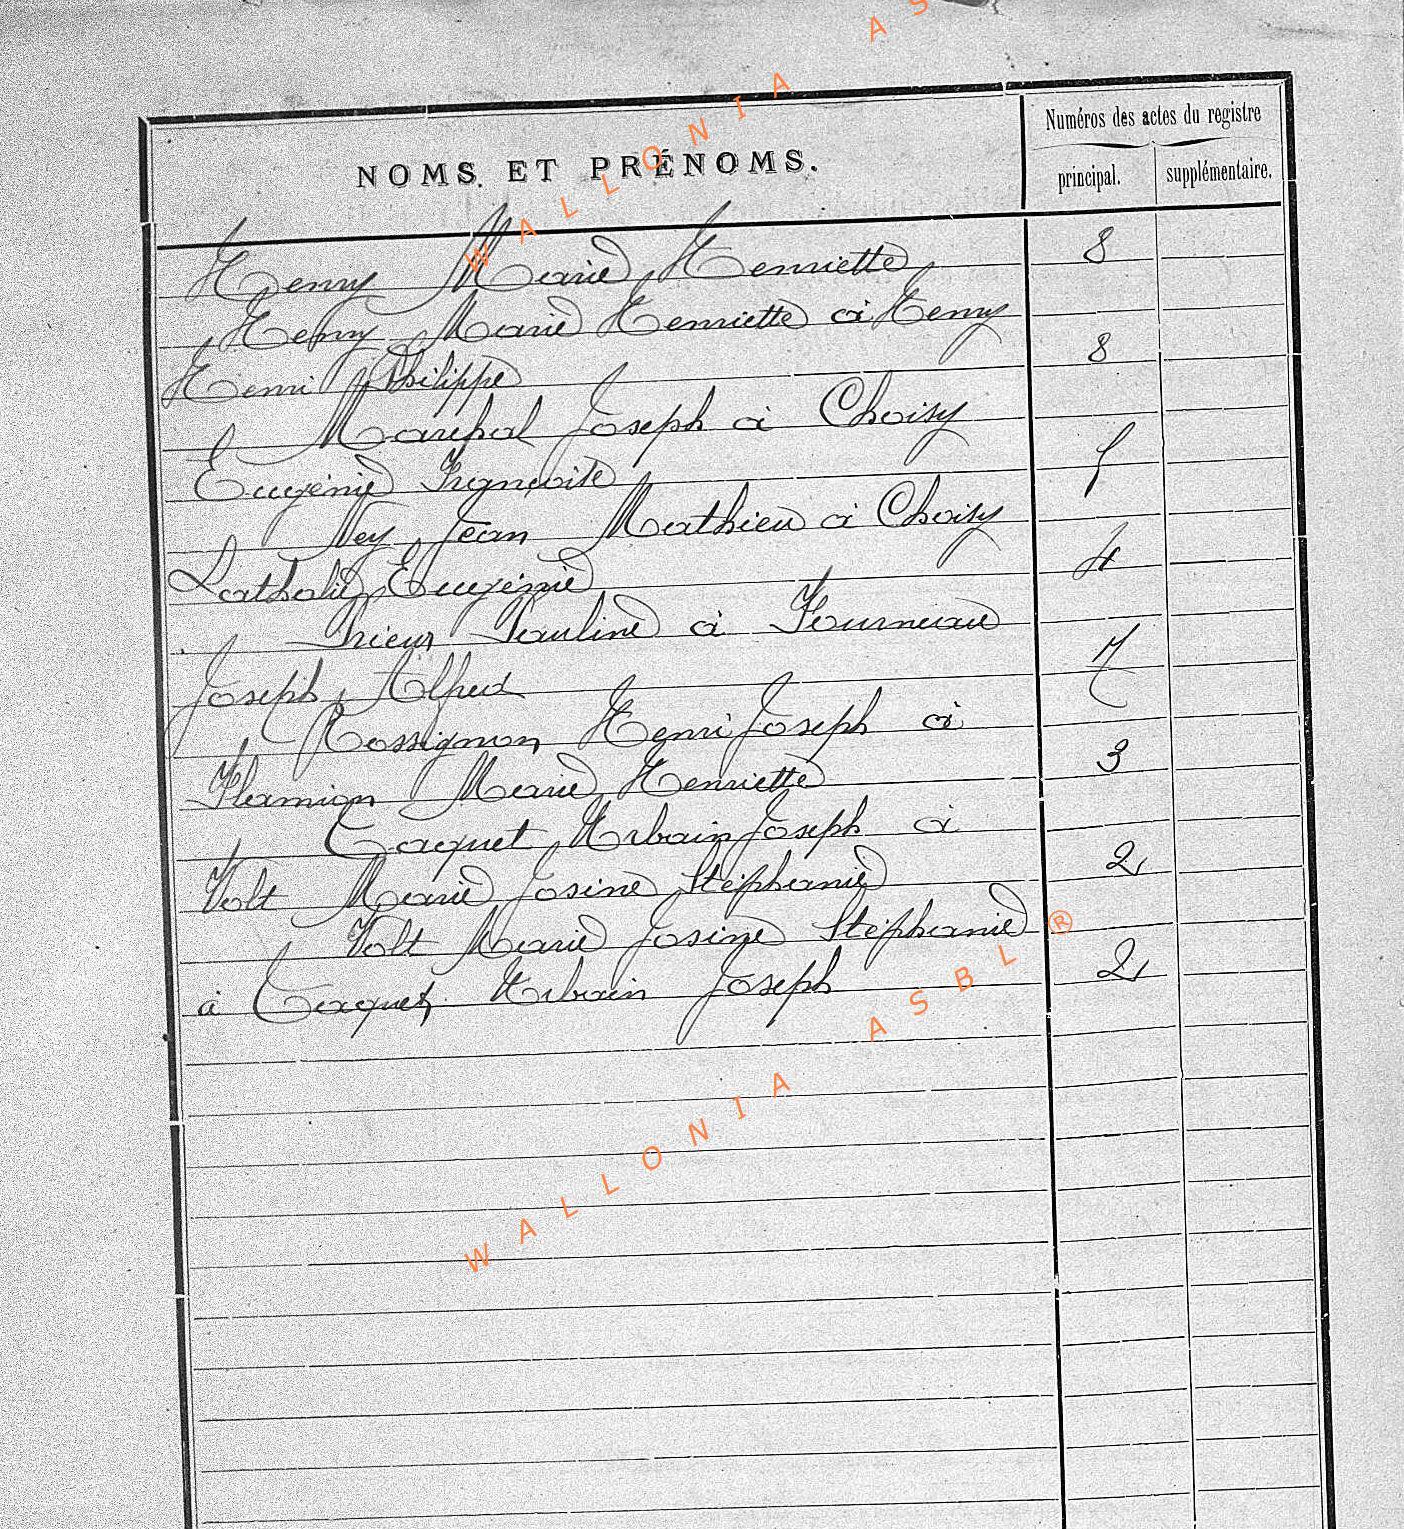 Numéros des actes du registre
NOMS ET PRÉNOMS.
principal. supplémentaire.
Henry Marie Henriette 8
Henry Marie Henriette à Henry
Henri Philippe 8
Maréchal Joseph à Choisy
Eugénie 5
Ney Jean Mathieu à Choisy
Eugénie 4
Pauline à Fourneau
Joseph Alfred 7
Rossignon Henri Joseph à
Flamion Marie Henriette 3
Jacquet Urbain Joseph à
Volt Marie Josine Stéphanie 2
Volt Marie Josine Stéphanie
à Jacquet Urbain Joseph 2
WALLONIA ASBL ®
WALLONIA AS